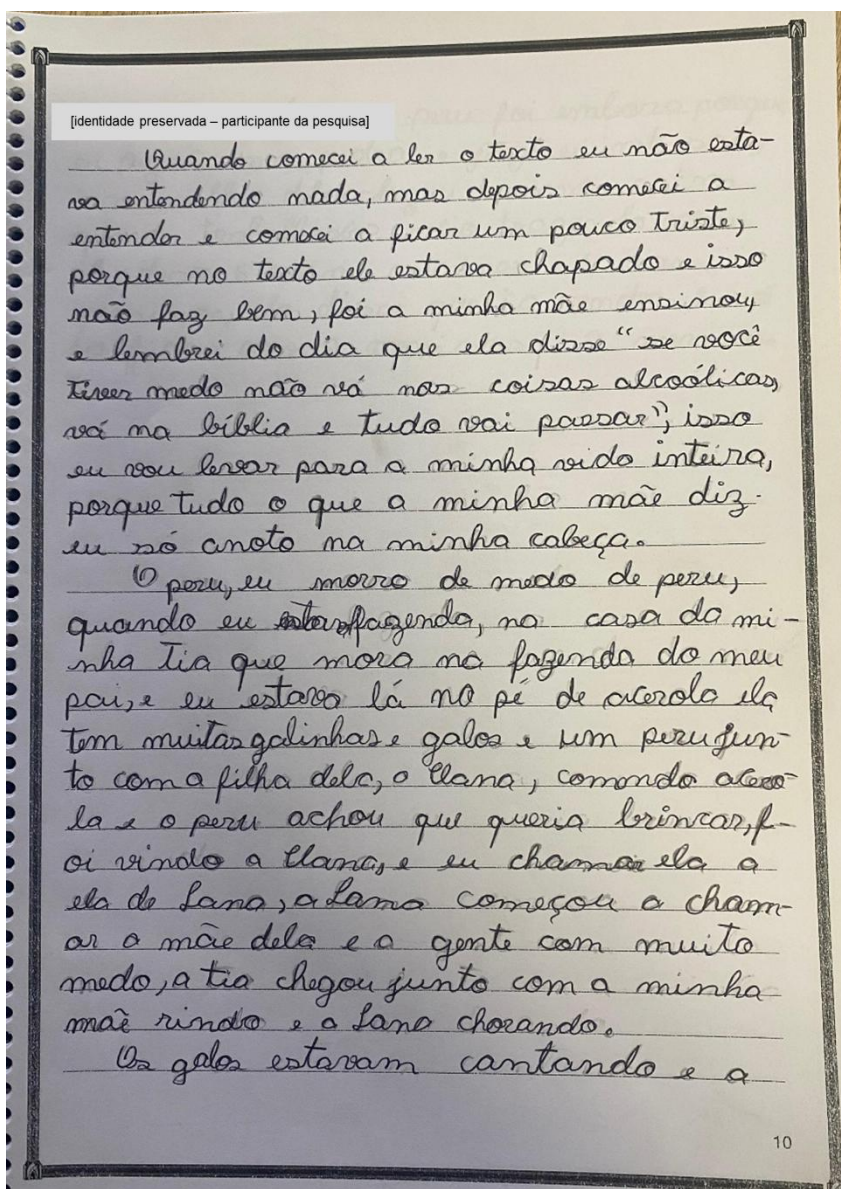 [identidade preservada – participante da pesquisa]
Quando comecei a ler o texto eu não esta-
va entendendo nada, mas depois comecei a
entender e comecei a ficar um pouco triste,
porque no texto ele estava chapado e isso
não faz bem, foi a minha mãe ensinou,
e lembrei do dia que ela disse “se você
tiver medo não vá nas coisas alcoólicas,
vá na bíblia e tudo vai passar”, isso
eu vou levar para a minha vida inteira,
porque tudo o que a minha mãe diz
eu só anoto na minha cabeça.
O peru, eu morro de medo de peru,
quando eu fazenda, na casa da mi-
nha tia que mora na fazenda do meu
pai, e eu estava lá no pé de acerola ela
tem muitas galinhas e galos e um peru jun-
to com a filha dela, a Llana, comendo acero-
la e o peru achou que queria brincar, f-
oi vindo a Llana, e eu chamar ela a
ela de Lana, a Lana começou a cham-
ar a mãe dela e a gente com muito
medo, a tia chegou junto com a minha
mãe rindo e a Lana chorando.
Os galos estavam cantando e a
10